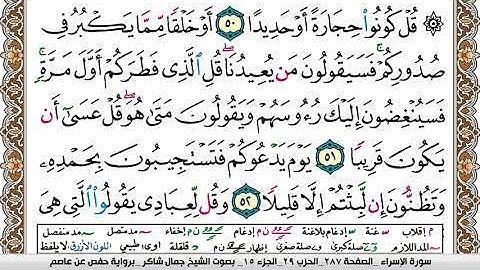 ۞ قُلْ كُونُوا۟ حِجَارَةً أَوْ حَدِيدًا ٥٠ أَوْ خَلْقًا مِّمَّا يَكْبُرُ فِى
صُدُورِكُمْ ۚ فَسَيَقُولُونَ مَن يُعِيدُنَا ۖ قُلِ ٱلَّذِى فَطَرَكُمْ أَوَّلَ مَرَّةٍ ۚ
فَسَيُنْغِضُونَ إِلَيْكَ رُءُوسَهُمْ وَيَقُولُونَ مَتَىٰ هُوَ ۖ قُلْ عَسَىٰٓ أَن
يَكُونَ قَرِيبًا ٥١ يَوْمَ يَدْعُوكُمْ فَتَسْتَجِيبُونَ بِحَمْدِهِۦ
وَتَظُنُّونَ إِن لَّبِثْتُمْ إِلَّا قَلِيلًا ٥٢ وَقُل لِّعِبَادِى يَقُولُوا۟ ٱلَّتِى هِىَ
م إقلاب غنة إدغام بلاغنة إدغام إخفاء مد متصل مد منفصل
المد اللازم صلة كبرى صلة صغرى إظهار قلقلة طبيعي اللون الأزرق لا يلفظ
سورة الإسراء _ الصفحة ٢٨٧ _ الحزب ٢٩ _ الجزء ١٥ _ بصوت الشيخ جمال شاكر _ برواية حفص عن عاصم